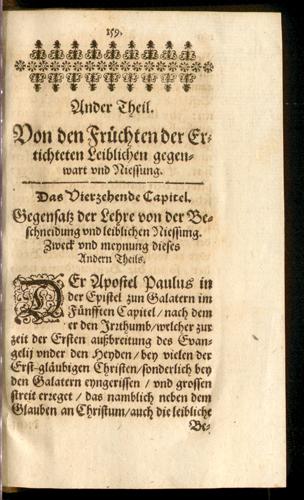 159.
Ander Theil.
Von den Früchten der Er-
tichteten Leiblichen gegen-
wart vnd Niessung.
Das Vierzehende Capitel.
Gegensatz der Lehre von der Be-
schneidung vnd leiblichen Niessung.
Zweck vnd meynung dieses
Andern Theils.
DEr Apostel Paulus in
der Epistel zun Galatern im
Fünfften Capitel / nach dem
er den Irrthumb / welcher zur
zeit der Ersten außbreitung des Evan-
gelij vnder den Heyden / bey vielen der
Erst-gläubigen Christen / sonderlich bey
den Galatern eyngerissen / vnd grossen
streit erreget / das namblich neben dem
Glauben an Christum / auch die leibliche
Be-